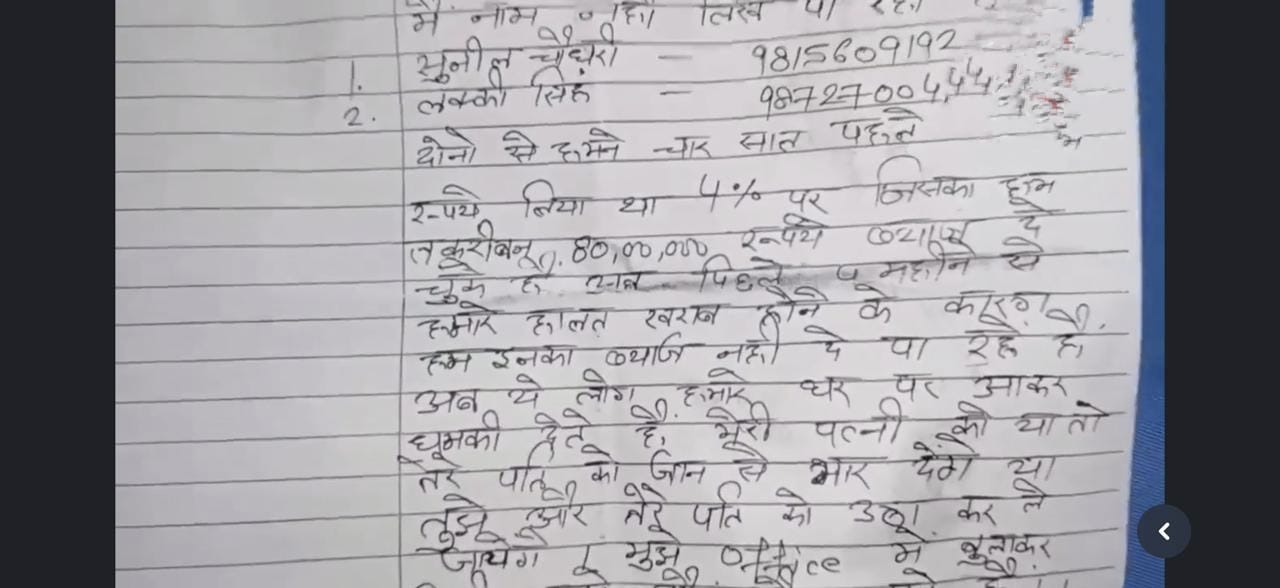 मै नाम नही लिख पा रहा
1. सुनील चौधरी — 9815609192
2. लक्की सिंह —987270044
दोनो से हमने चार साल पहले
रूपये लिया था 4% पर जिसका हम
तकरीबन 80,00,000 रूपये ब्याज दे
चुके है अब पिछले 5 महीने से
हमारे हालत खराब होने के कारण
हम इनका ब्याज नही दे पा रहे है
अब ये लोग हमारे घर पर आकर
धमकी देते है मेरी पत्नी को या तो
तेरे पति को जान से मार देंगे या
तुझे और तेरे पति को उठा कर ले
जायेगे । मुझे office मे बुलाकर